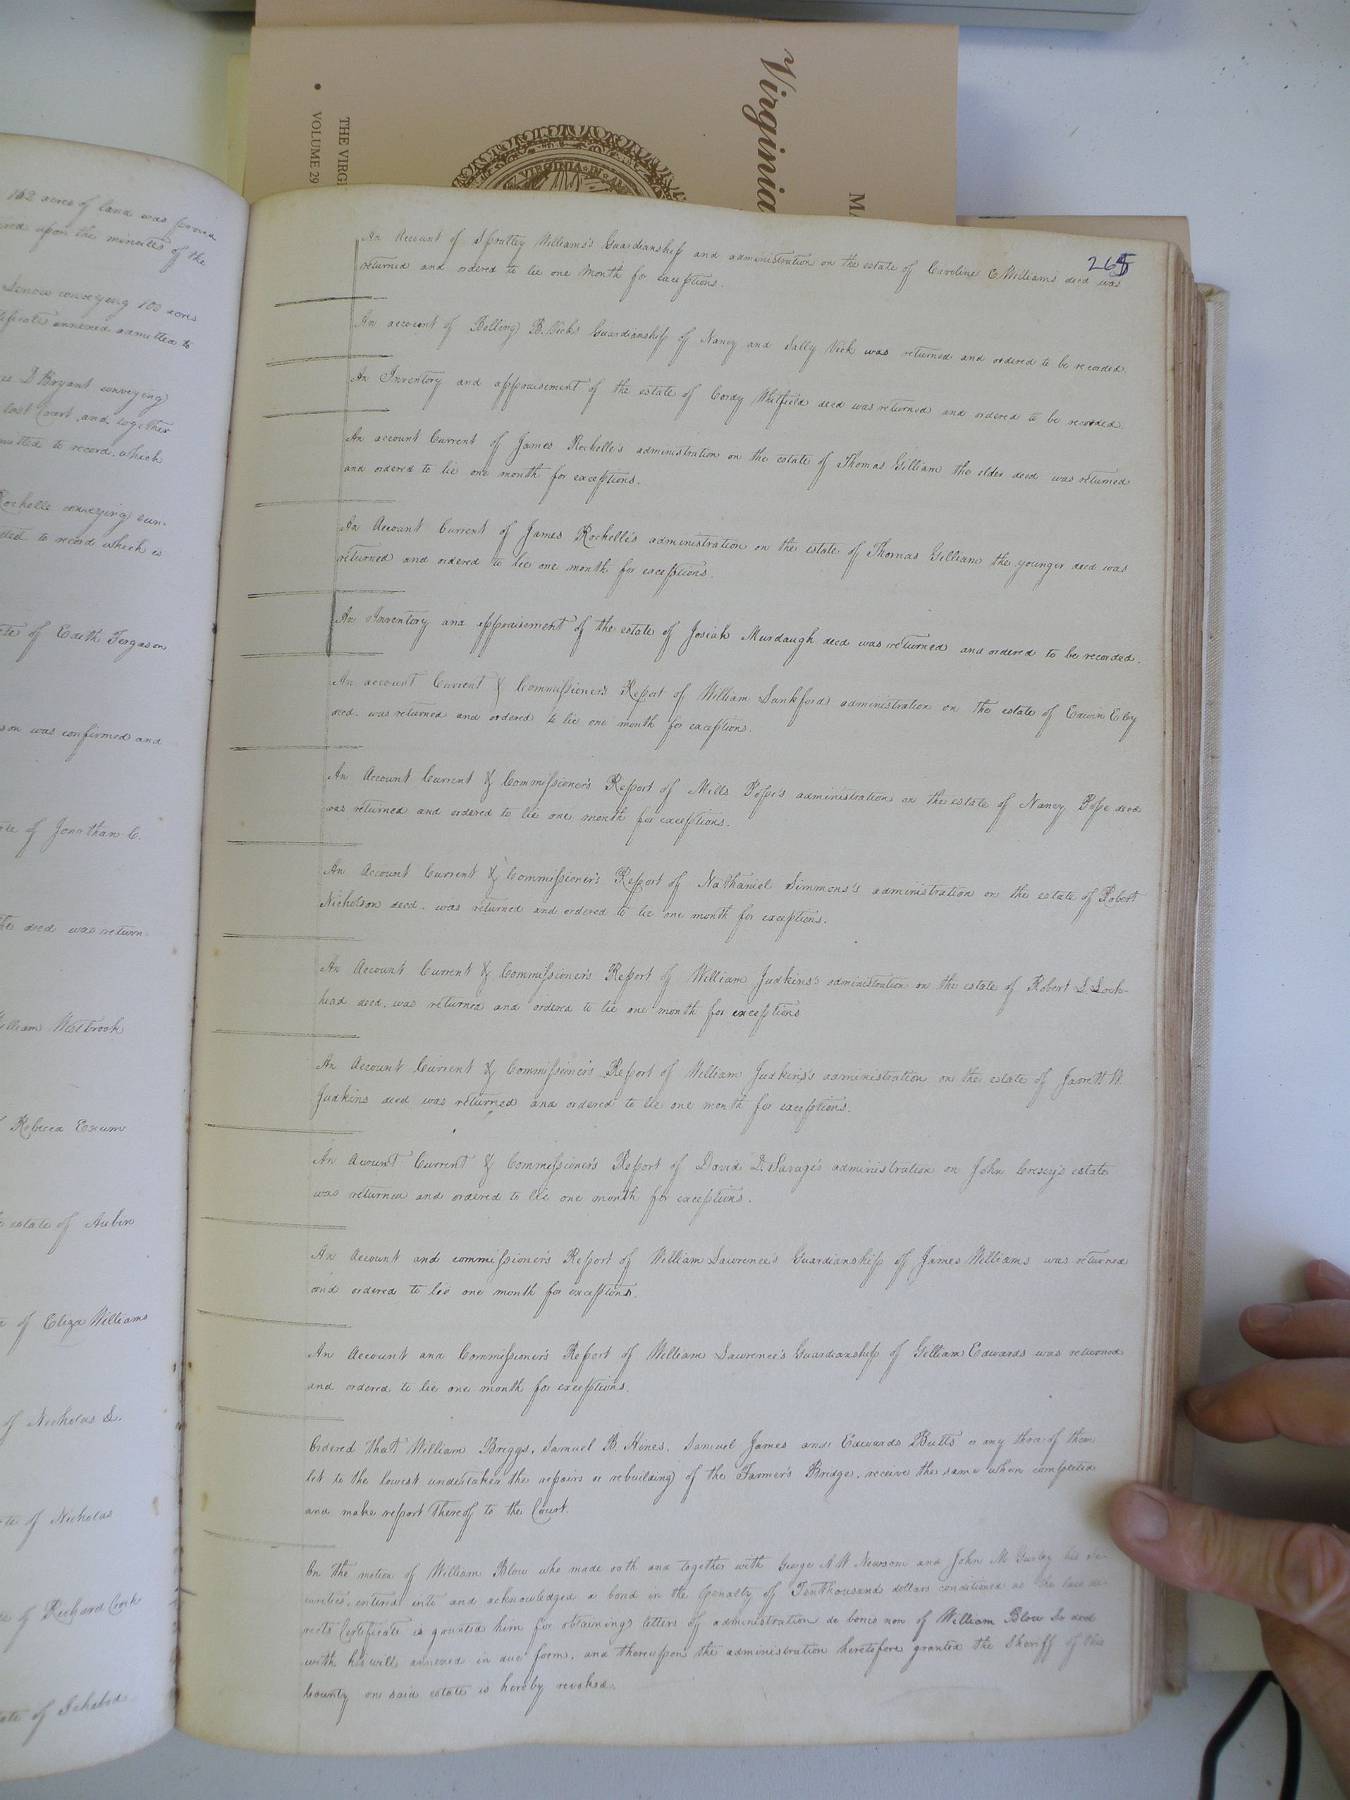 Virginia
THE VIRGI
VOLUME 29
VIRGINIA IN
162 acres of land was proved
upon the minutes of the
conveying 100 acres
annexed admitted to
D Bryant conveying
last Court, and together
to record, which
Rochelle conveying
to record which is
of Edith Ferguson
was confirmed and
of Jonathan C.
deed was return
William Westbrook
Rebecca Exum
estate of Aubin
of Eliza Williams
of Nicholas S.
of Nicholas
of Richard Cook
of Ichabod
265
An Account of Spratley Williams's Guardianship and administration on the estate of Caroline E Williams decd was
returned and ordered to lie one Month for exceptions.
An account of Bolling B. Vicks Guardianship of Nancy and Sally Vick was returned and ordered to be recorded.
An Inventory and appraisement of the estate of Cordy Whitfield decd was returned and ordered to be recorded.
An account Current of James Rochelle's administration on the estate of Thomas Gilliam the elder decd was returned
and ordered to lie one month for exceptions.
An Account Current of James Rochelle's administration on the estate of Thomas Gilliam the younger decd was
returned and ordered to lie one month for exceptions.
An Inventory and appraisement of the estate of Josiah Murdaugh decd was returned and ordered to be recorded.
An account Current & Commissioner's Report of William Lankfords administration on the estate of Erwin Eley
decd. was returned and ordered to lie one month for exceptions.
An Account Current & Commissioner's Report of Mills Pope's administration on the estate of Nancy Pope decd
was returned and ordered to lie one month for exceptions.
An Account Current & Commissioner's Report of Nathaniel Simmons's administration on the estate of Robert
Nicholson decd. was returned and ordered to lie one month for exceptions.
An Account Current & Commissioner's Report of William Judkins's administration on the estate of Robert S. Loch-
head decd. was returned and ordered to lie one month for exceptions
An Account Current & Commissioner's Report of William Judkins's administration on the estate of Jarrett W.
Judkins decd was returned and ordered to lie one month for exceptions.
An Account Current & Commissioner's Report of David D. Savage's administration on John Cresey's estate
was returned and ordered to lie one month for exceptions.
An Account and commissioner's Report of William Lawrence's Guardianship of James Williams was returned
and ordered to lie one month for exceptions.
An Account and Commissioner's Report of William Lawrence's Guardianship of Gilliam Edwards was returned
and ordered to lie one month for exceptions.
Ordered that William Briggs, Samuel B. Hines, Samuel James and Edwards Butts or any three of them
let to the lowest undertaker the repairs or rebuilding of the Farmer's Bridge, receive the same when completed
and make report thereof to the Court.
On the motion of William Blow who made oath and together with George A W Newsom and John M Gurley his se-
curities, entered into and acknowledged a bond in the penalty of Ten thousand dollars conditioned as the law di-
rects Certificate is granted him for obtaining letters of administration de bonis non of William Blow Sr decd
with his will annexed in due form, and thereupon the administration heretofore granted the Sheriff of this
County on said estate is hereby revoked.